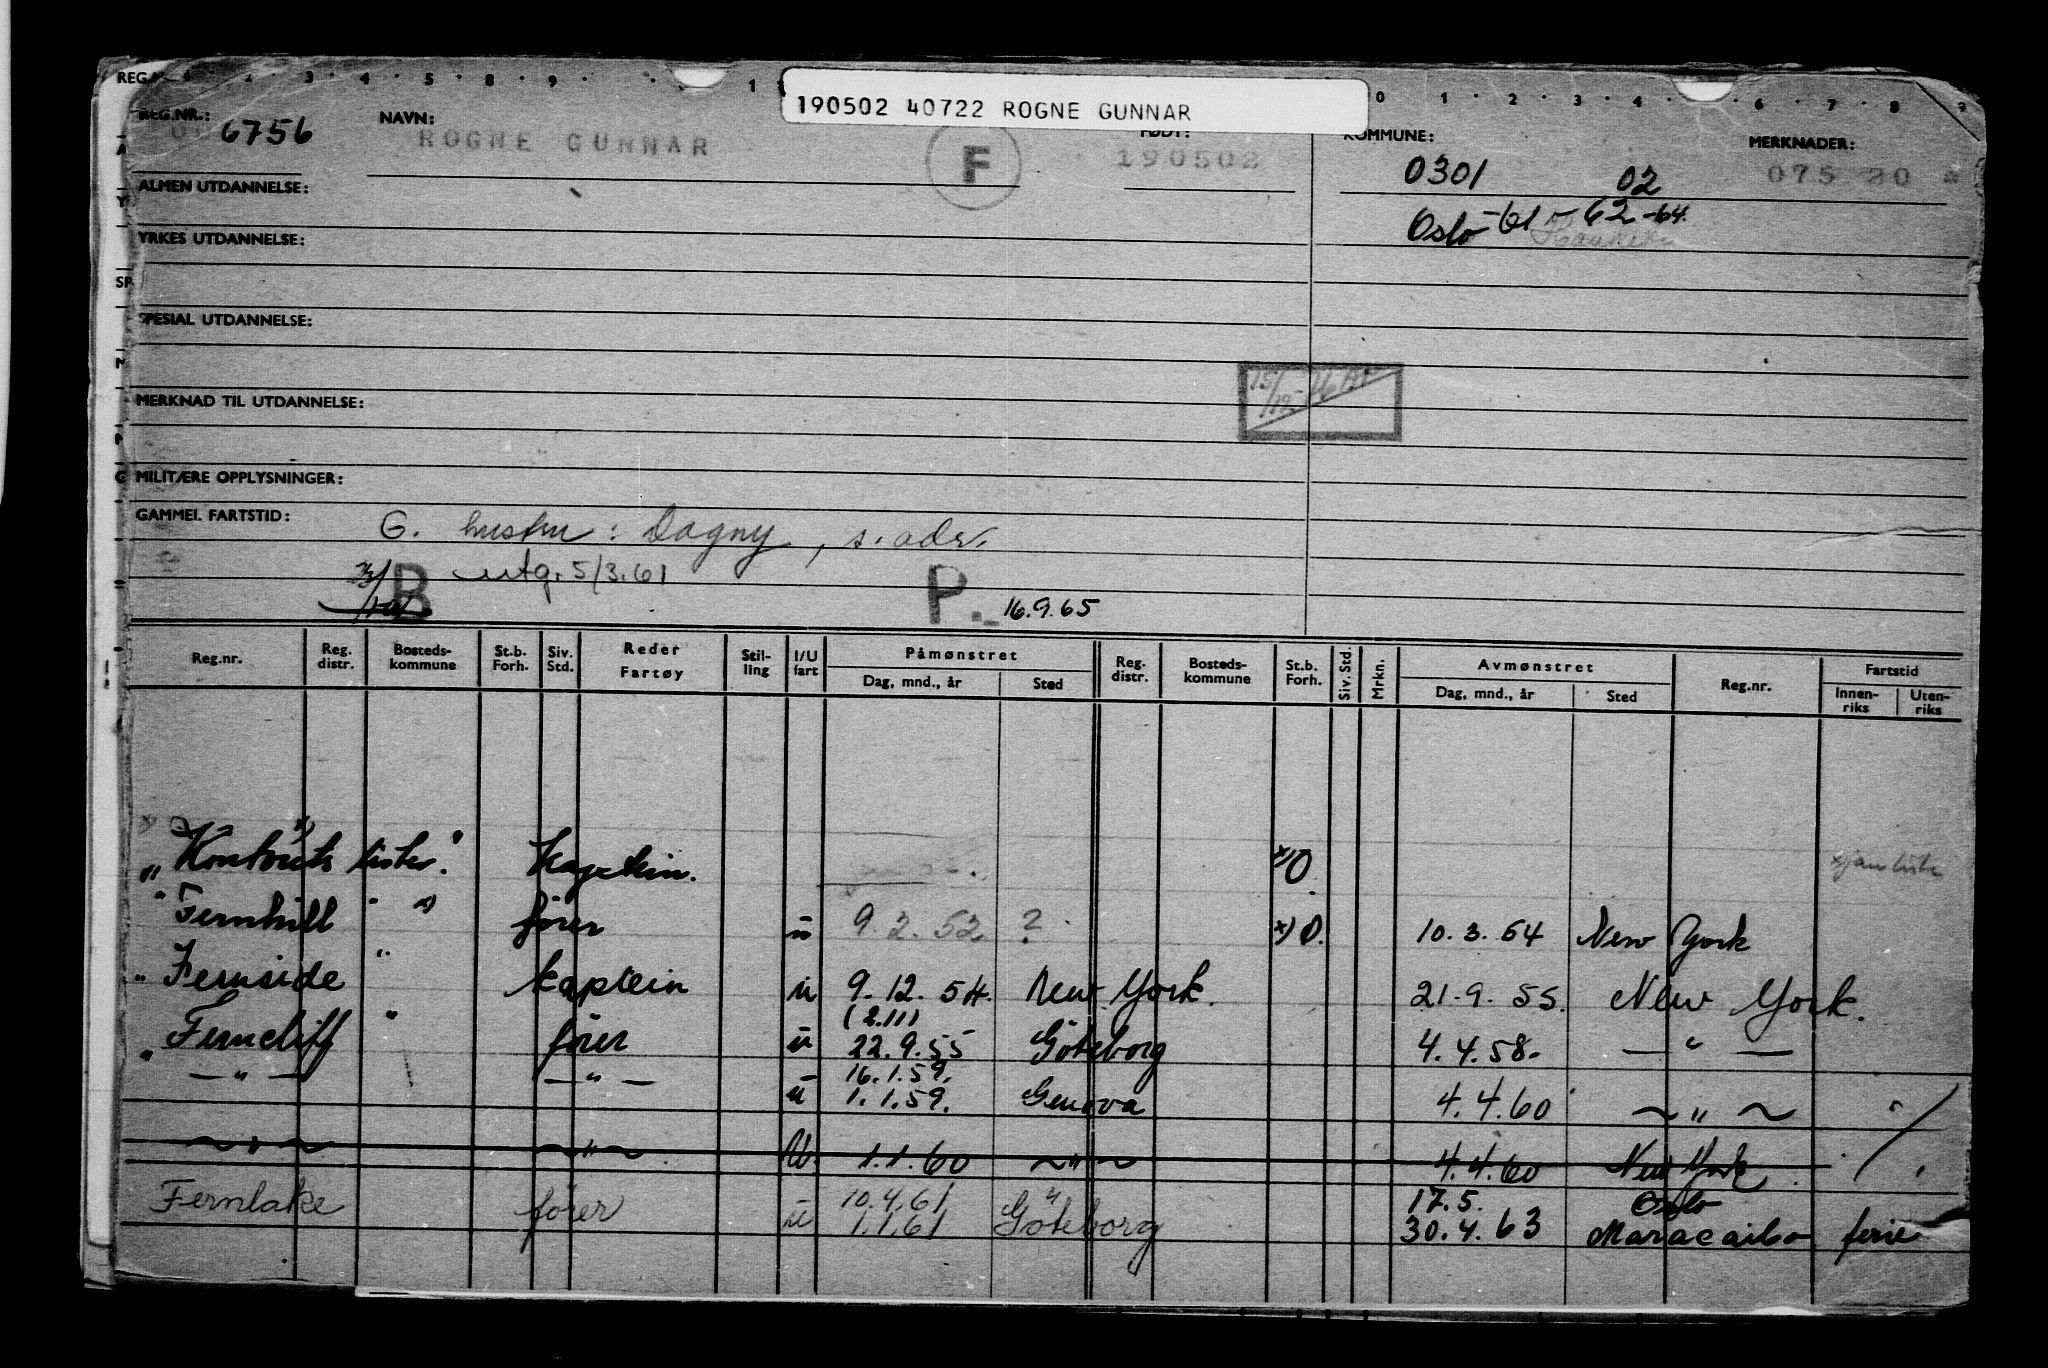 190502 40722 ROGNE GUNNAR
REG.NR.: 6756 NAVN: ROGNE GUNNAR F FØDT: 190502 KOMMUNE: 0301 02 MERKNADER: 075 20
Oslo -61 - 62-64.
ALMEN UTDANNELSE:
YRKES UTDANNELSE:
SPESIAL UTDANNELSE:
MERKNAD TIL UTDANNELSE:
MILITÆRE OPPLYSNINGER:
GAMMEL FARTSTID:
G. hustru: Dagny, s. adr.
B utg. 5/3.61 P. 16.9.65
Reg.nr. Reg. distr. Bosteds-kommune St.b. Forh. Siv. Std. Reder Fartøy Stil-ling I/U fart Påmønstret Dag, mnd., år Sted Reg. distr. Bosteds-kommune St.b. Forh. Siv. Std. Mrkn. Avmønstret Dag, mnd., år Sted Reg.nr. Fartstid Innen-riks Uten-riks
Kaptein. x) O.
" Fernhill " x) fører u 9.2.52 ? x) O. 10.3.54 New York
" Fernside " kaptein u 9.12.54. New York. 21.9.55. New York.
(2.11)
" Ferncliff " fører u 22.9.55 Göteborg 4.4.58. — " —
16.1.59.
— " — — " — u 1.1.59. Genova 4.4.60 ~ " ~
~ " ~ ~ " ~ U. 1.1.60 ~ " ~ 4.4.60 New York
10.4.61 " 17.5. Oslo
Fernlake fører u 1.1.61 Göteborg 30.4.63 Maracaibo ferie